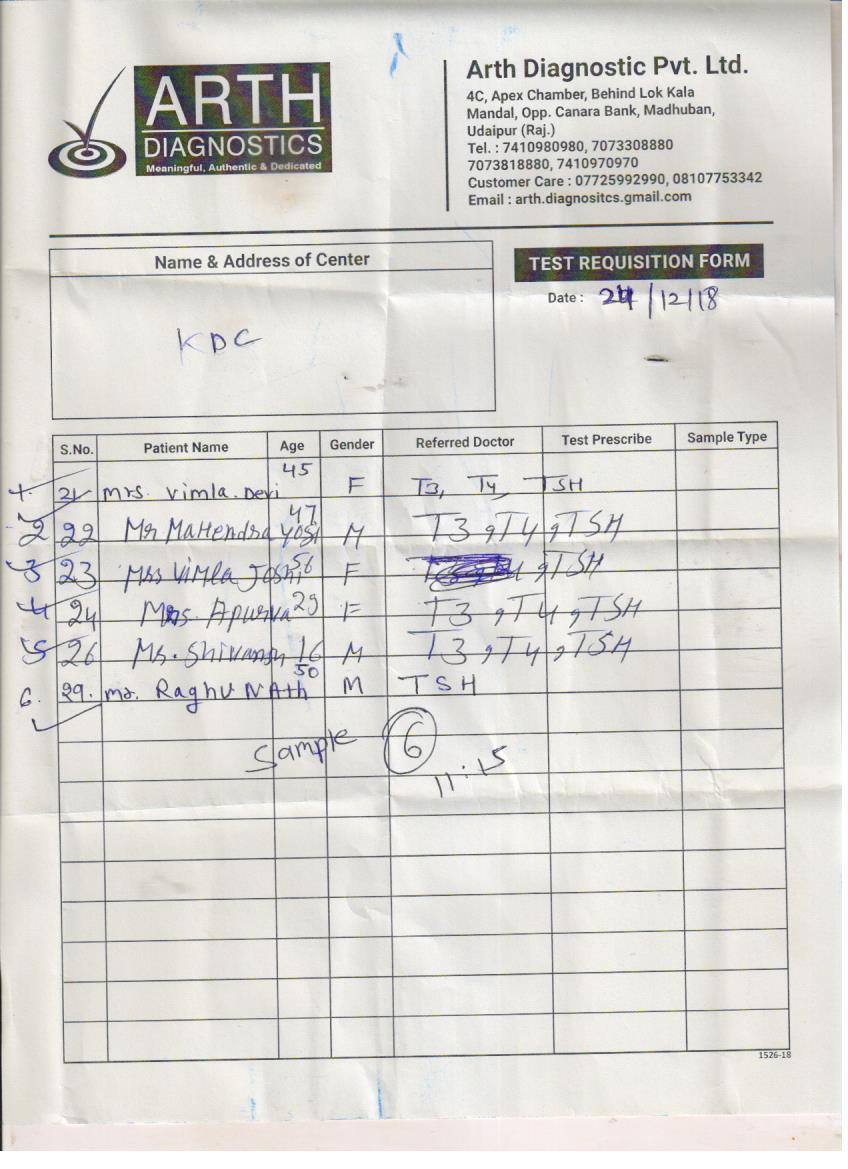 ARTH
DIAGNOSTICS
Meaningful, Authentic & Dedicated
Arth Diagnostic Pvt. Ltd.
4C, Apex Chamber, Behind Lok Kala
Mandal, Opp. Canara Bank, Madhuban,
Udaipur (Raj.)
Tel. : 7410980980, 7073308880
7073818880, 7410970970
Customer Care : 07725992990, 08107753342
Email : arth.diagnositcs.gmail.com
Name & Address of Center
KDC
TEST REQUISITION FORM
Date : 24/12/18
S.No. Patient Name Age Gender Referred Doctor Test Prescribe Sample Type
1. 21 Mrs. Vimla Devi 45 F T3, T4, TSH
2 22 Mr Mahendra Yosi 47 M T3, T4, TSH
3 23 Mrs Vimla Joshi 56 F , TSH
4 24 Mrs. Apurva 29 F T3, T4, TSH
5 26 Mr. Shivansh 16 M T3, T4, TSH
6. 29. Mr. Raghu NAth 50 M TSH
Sample 6
11:15
1526-18